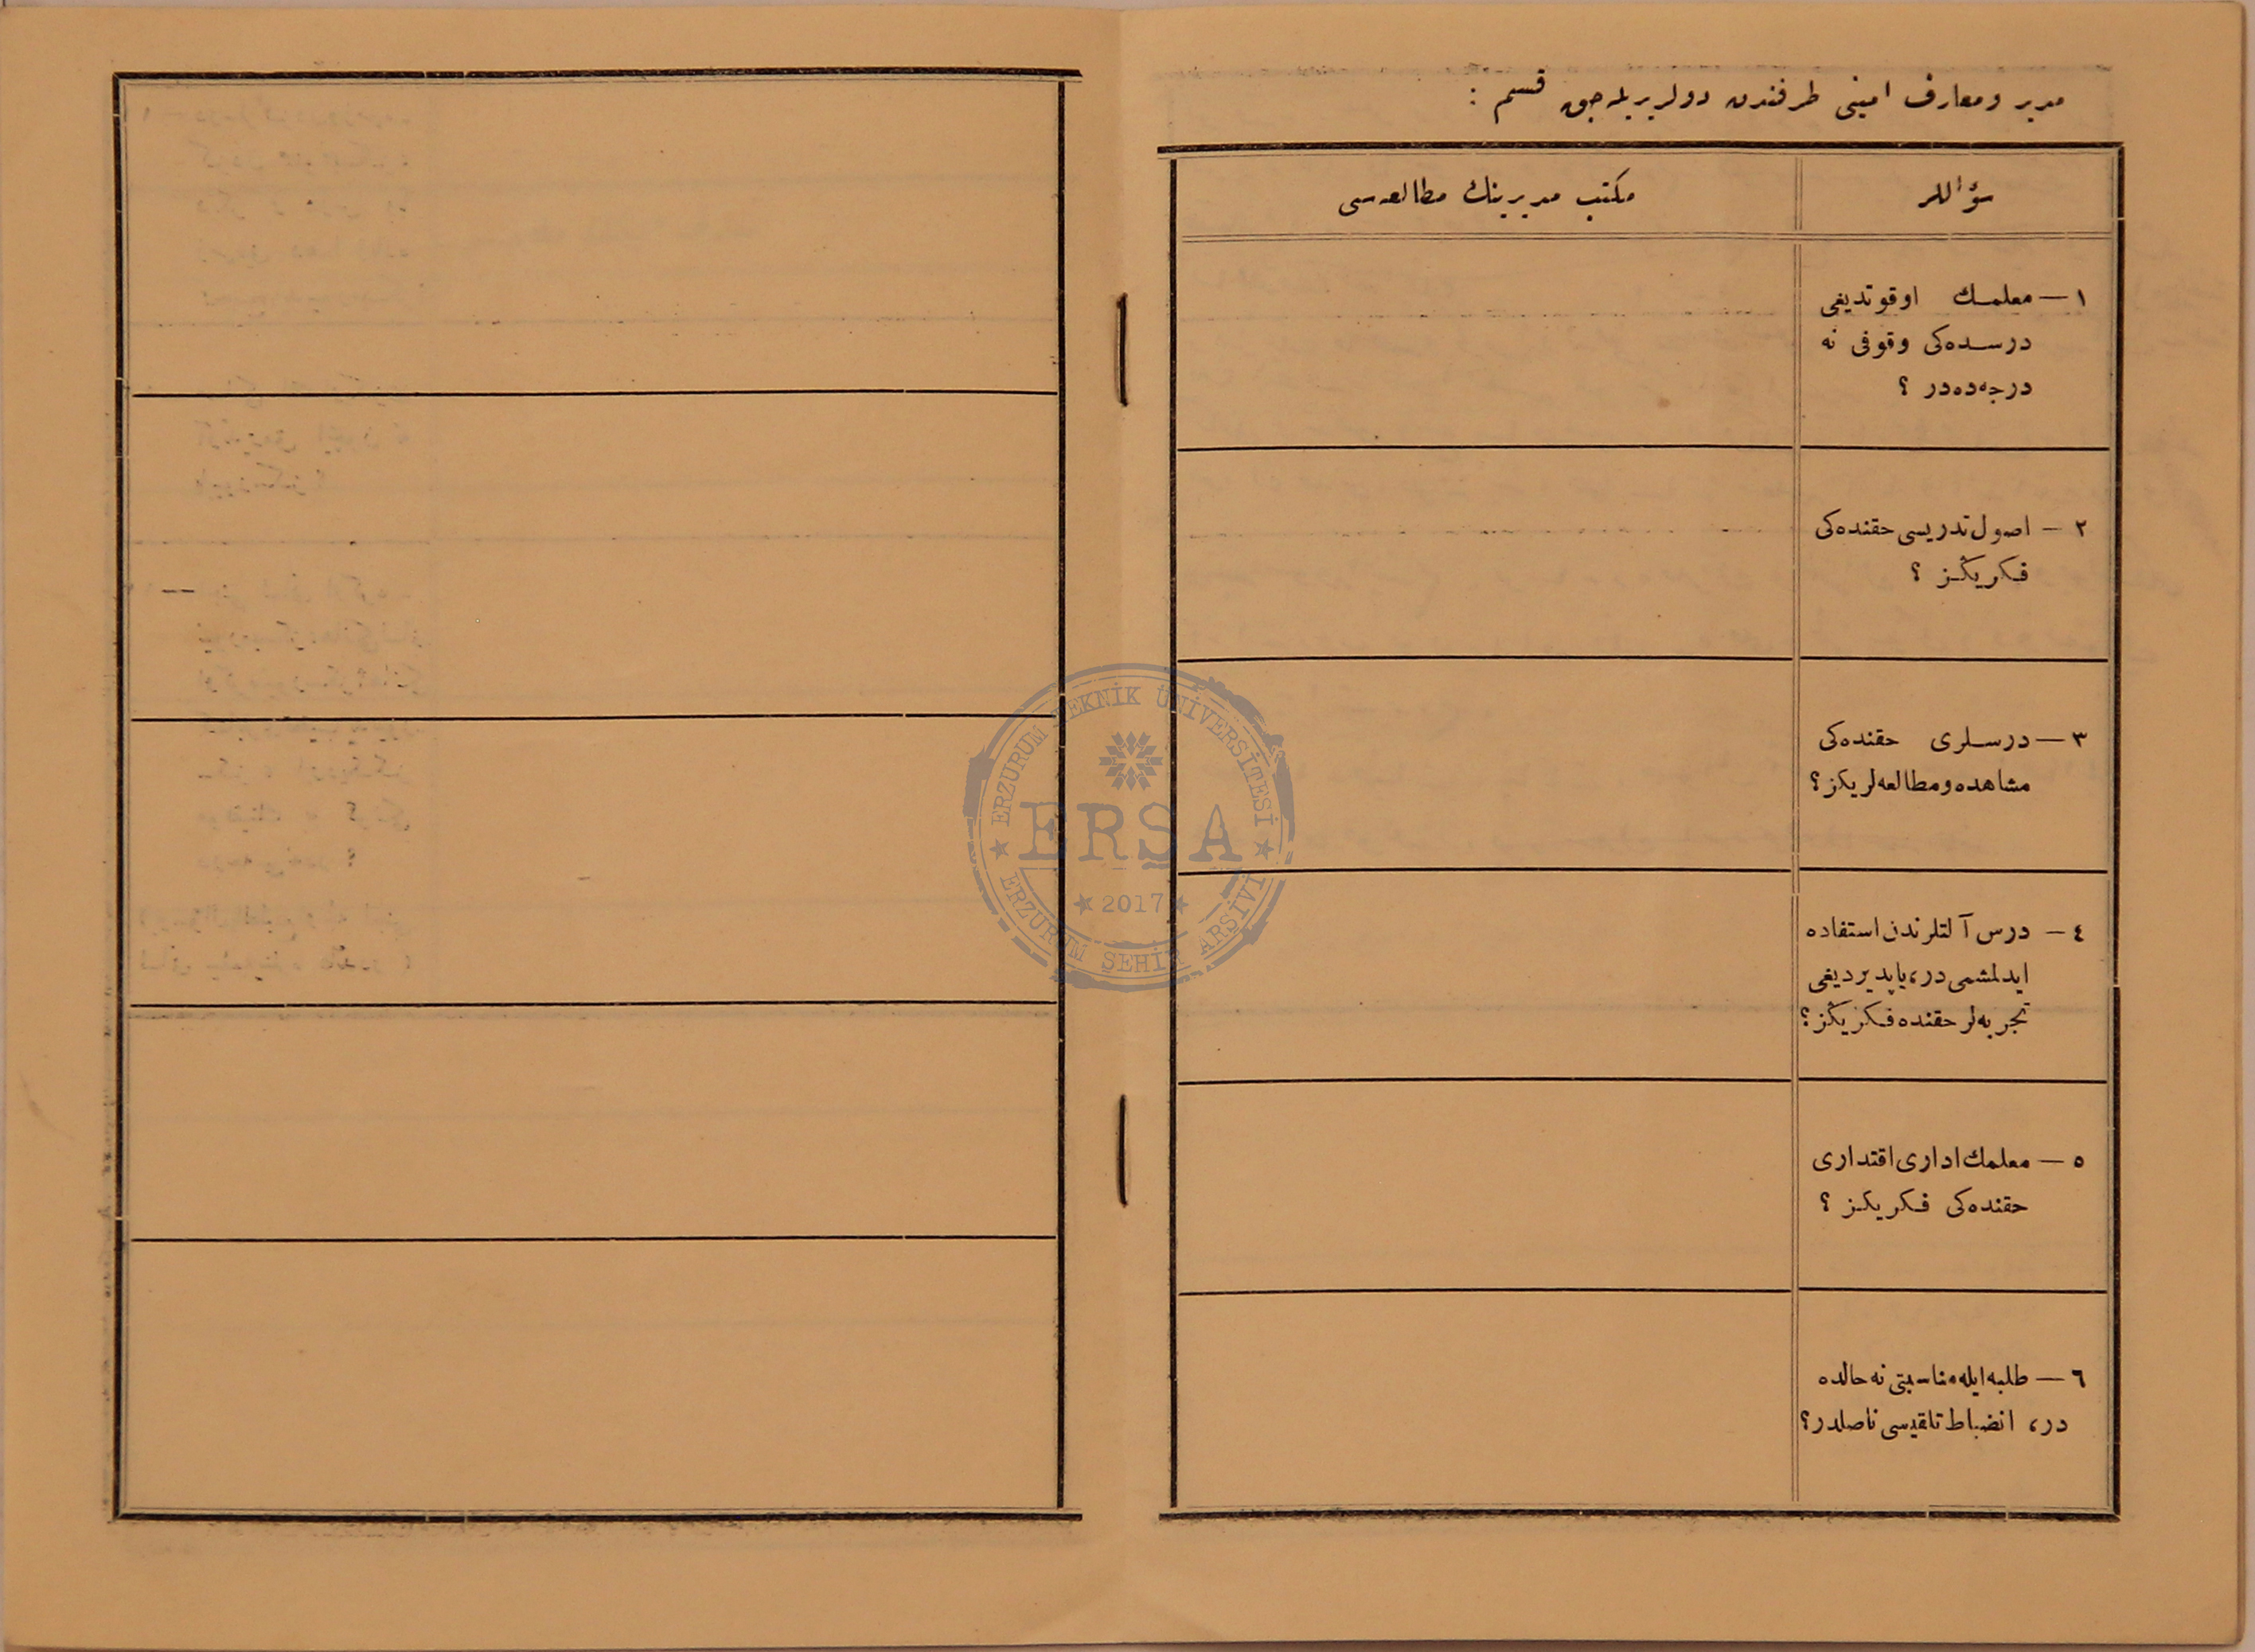 مدیر و معارف امینی طرفندن دولدیریله‌جق قسم :
سؤاللر
مكتب مدیرینك مطالعه‌سی
١ — معلمك اوقوتدیغی
درسده‌كی وقوفی نه
درجه‌ده‌در ؟
٢ — اصول تدریسی حقنده‌كی
فكریڭز ؟
٣ — درسلری حقنده‌كی
مشاهده و مطالعه‌لریكز ؟
٤ — درس آلتلرندن استفاده
ایدلمشمی در، یاپدیردیغی
تجربه‌لر حقنده فكریڭز ؟
٥ — معلمك اداری اقتداری
حقنده‌كی فكریكز ؟
٦ — طلبه ایله مناسبتی نه حالده
در، انضباط تلقیسی ناصلدر؟
ERZURUM TEKNİK ÜNİVERSİTESİ
ERŞA
2017
ERZURUM ŞEHİR ARŞİVİ